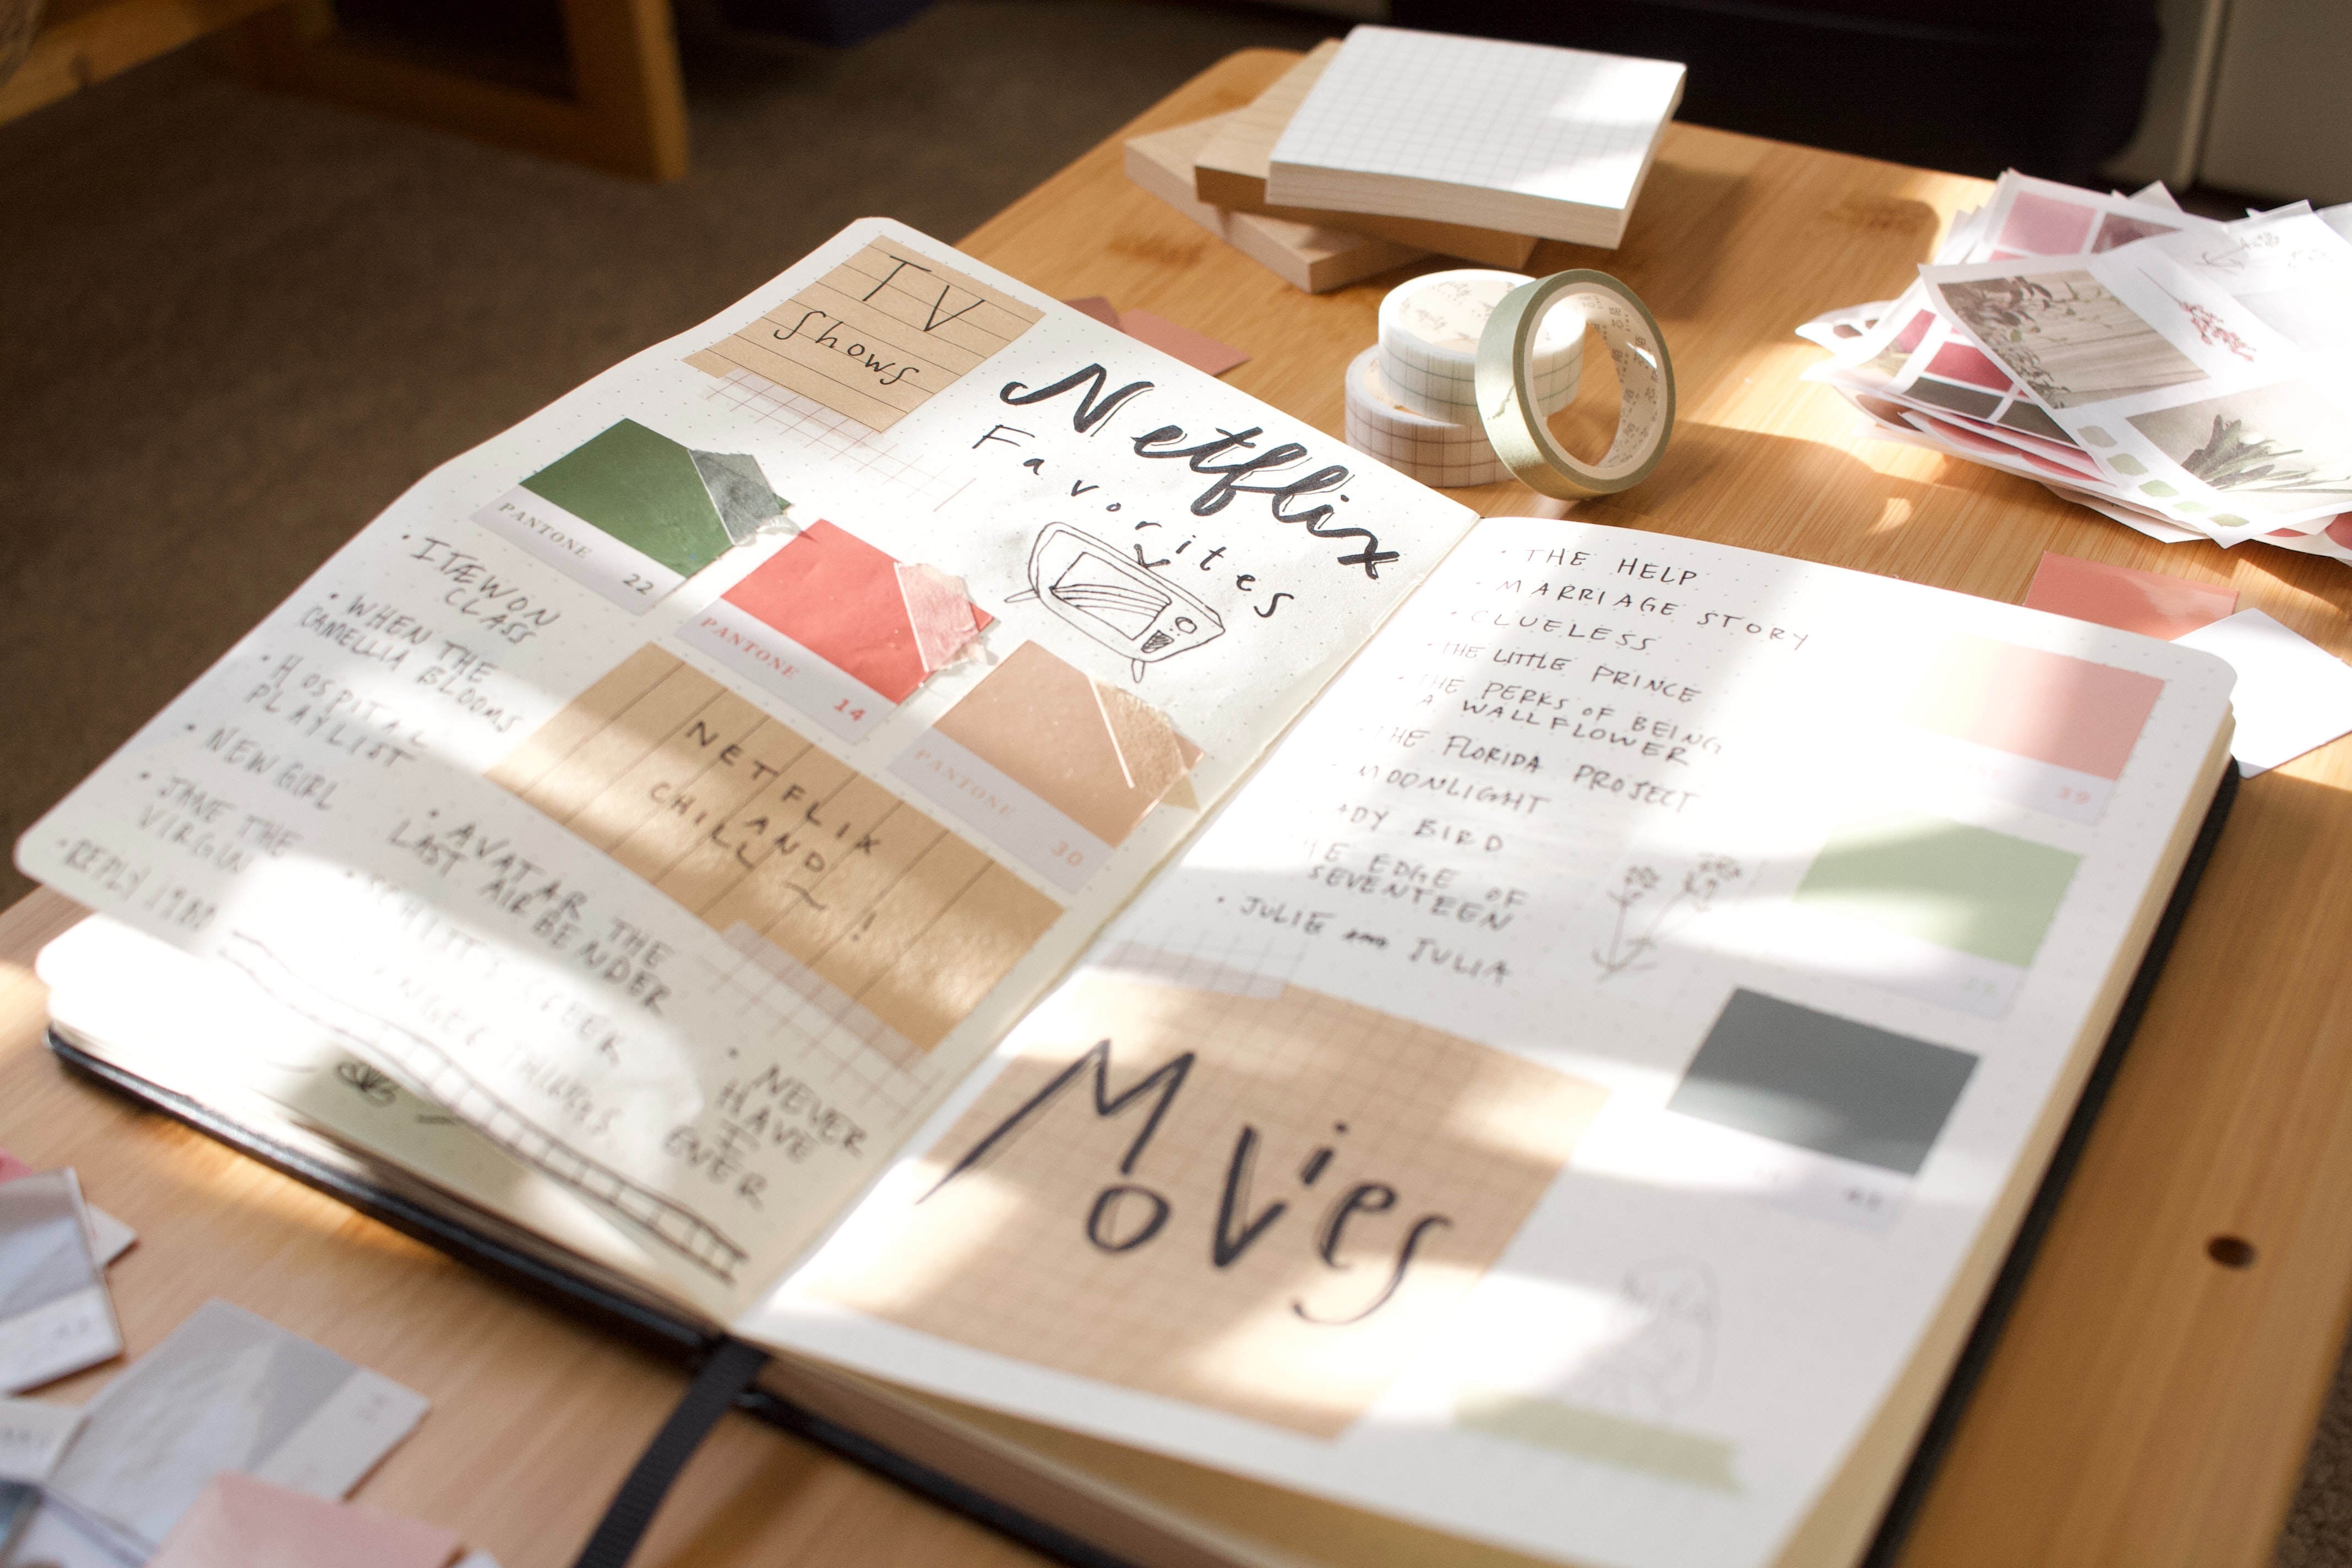 TV
Shows
Netflix
Favorites
PANTONE
22
PANTONE
14
PANTONE
30
• ITAEWON
CLASS
• WHEN THE
CAMELLIA BLOOMS
• HOSPITAL
PLAYLIST
• NEW GIRL
• JANE THE
VIRGIN
• REPLY 1988
NETFLIX
AND
CHILL ~ !
• AVATAR THE
LAST AIRBENDER
• SCHITT'S CREEK
THINGS
• NEVER
HAVE
I
EVER
• THE HELP
• MARRIAGE STORY
• CLUELESS
• THE LITTLE PRINCE
• THE PERKS OF BEING
A WALLFLOWER
THE FLORIDA PROJECT
MOONLIGHT
ADY BIRD
EDGE OF
SEVENTEEN
• JULIE AND JULIA
39
Movies